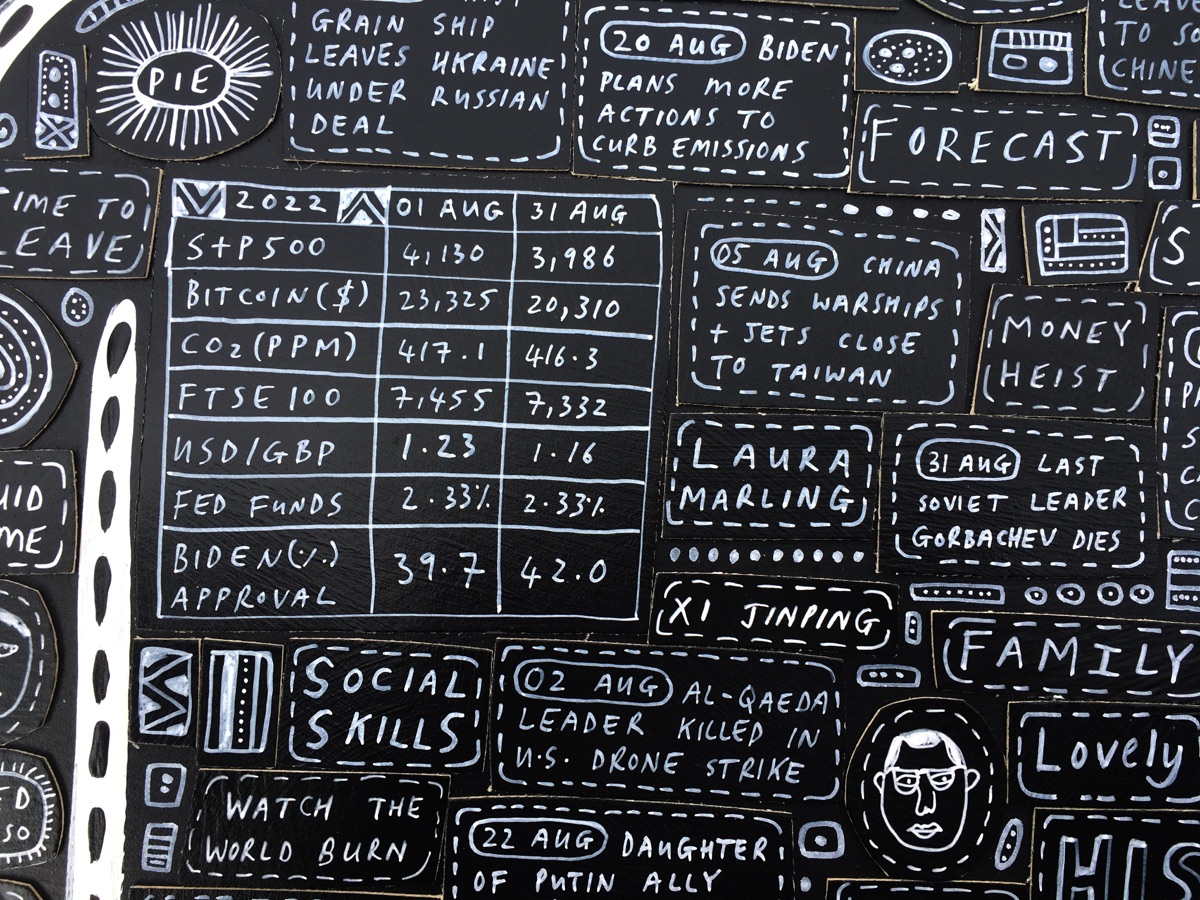 PIE
GRAIN SHIP
LEAVES UKRAINE
UNDER RUSSIAN
DEAL
20 AUG BIDEN
PLANS MORE
ACTIONS TO
CURB EMISSIONS
TO
CHINE
FORECAST
TO
2022 01 AUG 31 AUG
S+P500 4,130 3,986
BITCOIN($) 23,325 20,310
CO2(PPM) 417.1 416.3
FTSE 100 7,455 7,332
USD/GBP 1.23 1.16
FED FUNDS 2.33% 2.33%
BIDEN(%) APPROVAL 39.7 42.0
05 AUG CHINA
SENDS WARSHIPS
+ JETS CLOSE
TO TAIWAN
MONEY
HEIST
LAURA
MARLING
31 AUG LAST
SOVIET LEADER
GORBACHEV DIES
XI JINPING
FAMILY
SOCIAL
SKILLS
02 AUG AL-QAEDA
LEADER KILLED IN
U.S. DRONE STRIKE
Lovely
WATCH THE
WORLD BURN
22 AUG DAUGHTER
OF PUTIN ALLY
HIS